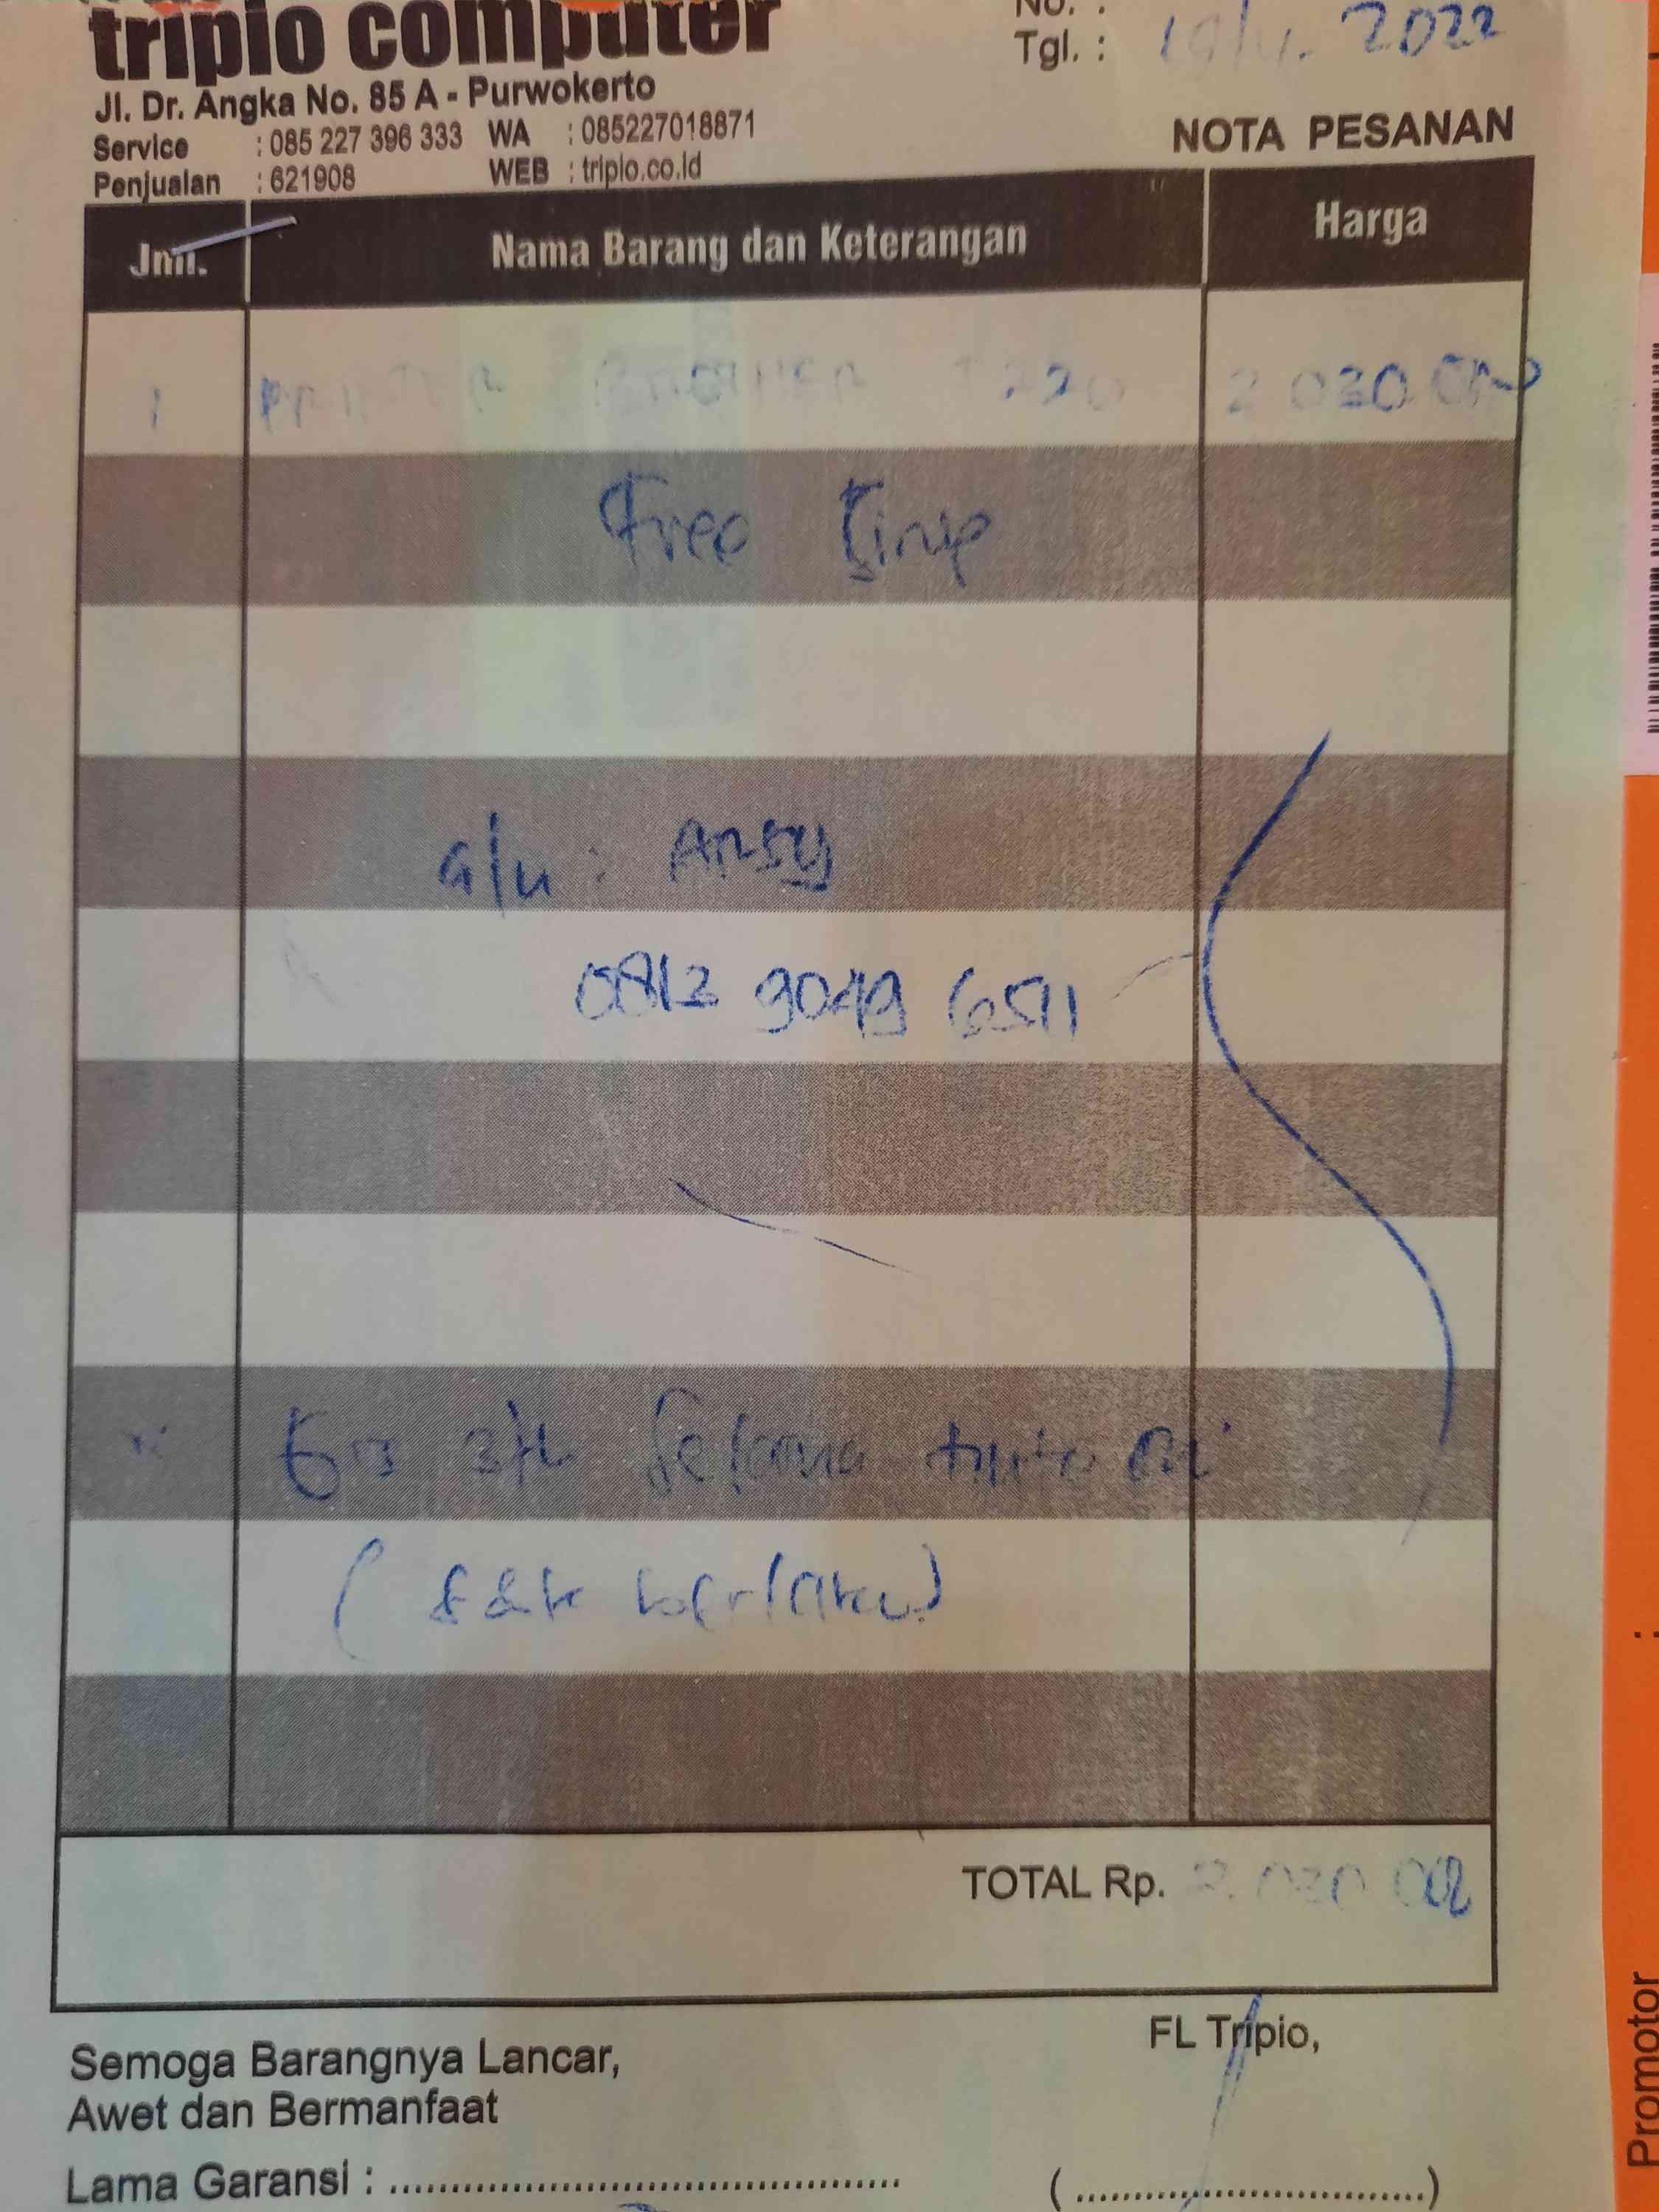 tripio computer
No. :
Tgl. : 2022
Jl. Dr. Angka No. 85 A - Purwokerto
Service : 085 227 396 333 WA : 085227018871
Penjualan : 621908 WEB : tripio.co.id
NOTA PESANAN
Jml. Nama Barang dan Keterangan Harga
1 PRINTER BROTHER T220 2 030 000
Free
a/n : Arsy
0812 9049 6511
Selama
(S&k berlaku)
TOTAL Rp. 2.030 000
Semoga Barangnya Lancar,
Awet dan Bermanfaat
FL Tripio,
Lama Garansi : ........................................
(..............................)
Promotor :